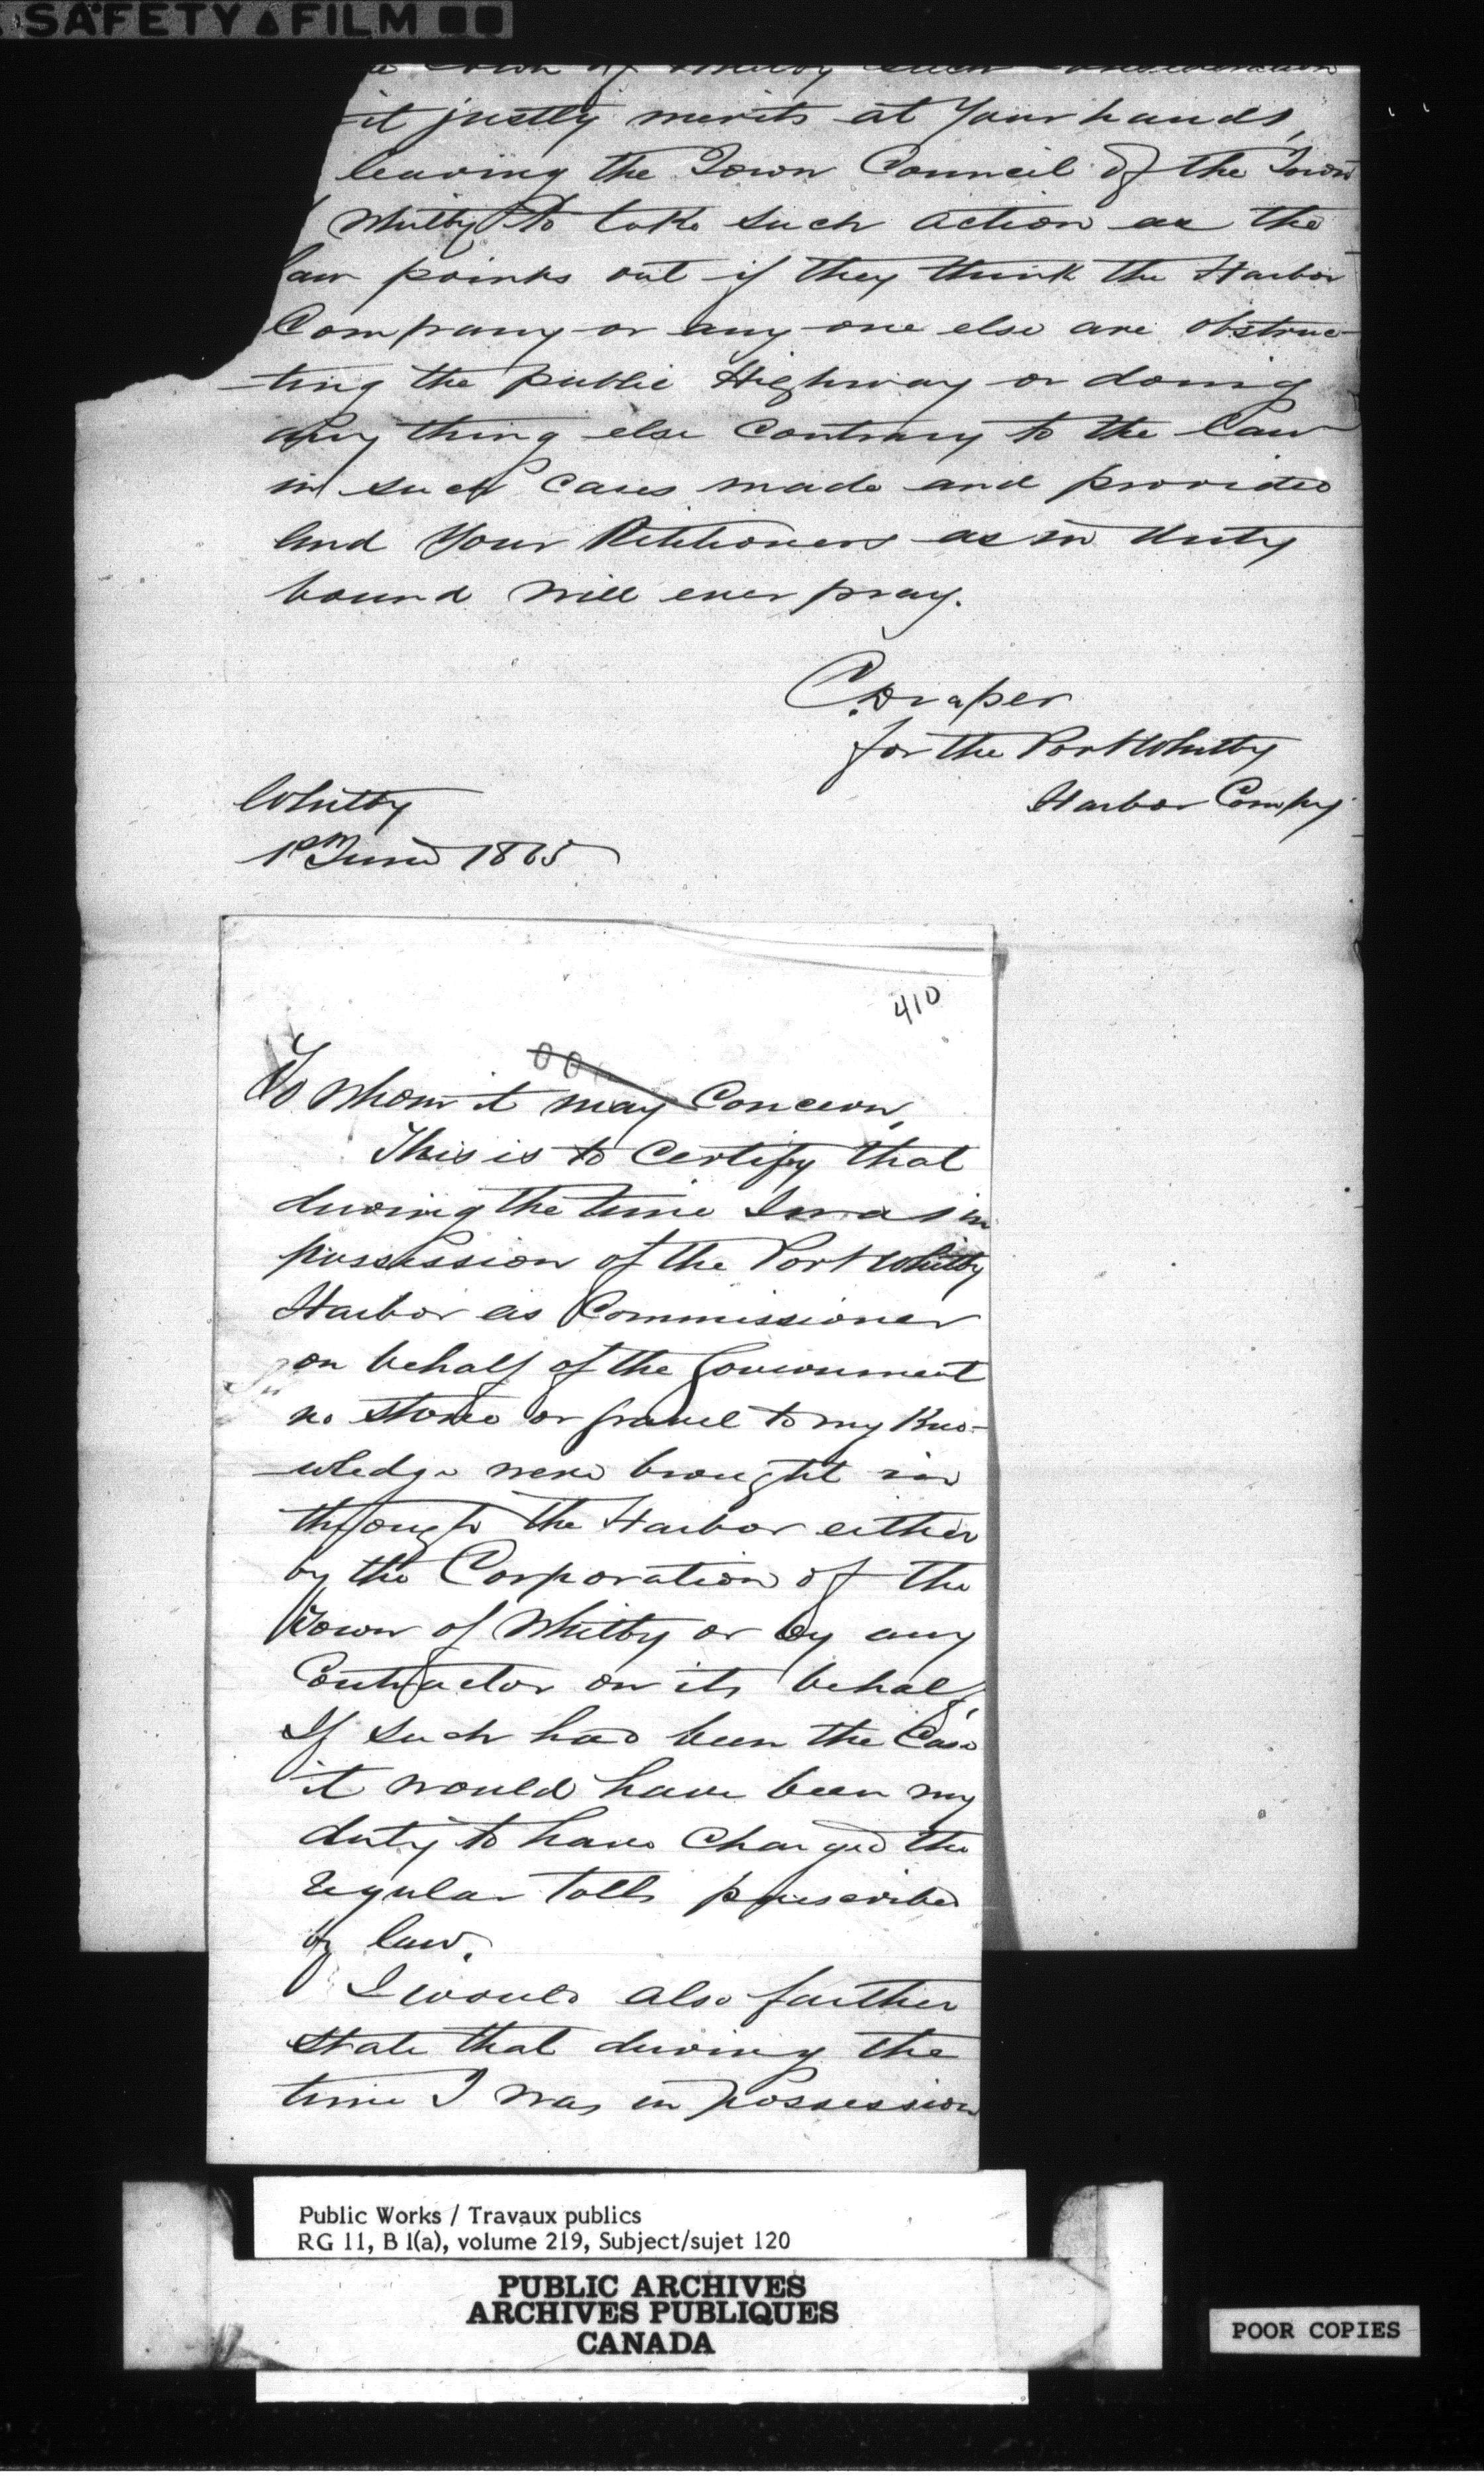 SAFETY FILM
it justly merits at Your hands,
leaving the Town Council of the Town
Whitby to take such action as the
law points out if they think the Harbor
Company or any one else are obstruc-
-ting the public Highway or doing
any thing else Contrary to the Law
in such Cases made and provided
And Your Petitioners as in duty
bound will ever pray.
C. Draper
for the Port Whitby
Harbor Compy
Whitby
June 1865
410
To Whom it may Concern,
This is to Certify that
during the time I was in
possession of the Port Whitby
Harbor as Commissioner
on behalf of the Government
no stone or gravel to my Kno-
-wledge were brought in
through the Harbor either
by the Corporation of the
Town of Whitby or by any
Contractor on its behalf,
If such had been the Case
it would have been my
duty to have Charged the
regular tolls prescribed
by law.
I would also further
state that during the
time I was in possession
Public Works / Travaux publics
RG 11, B 1(a), volume 219, Subject/sujet 120
PUBLIC ARCHIVES
ARCHIVES PUBLIQUES
CANADA
POOR COPIES